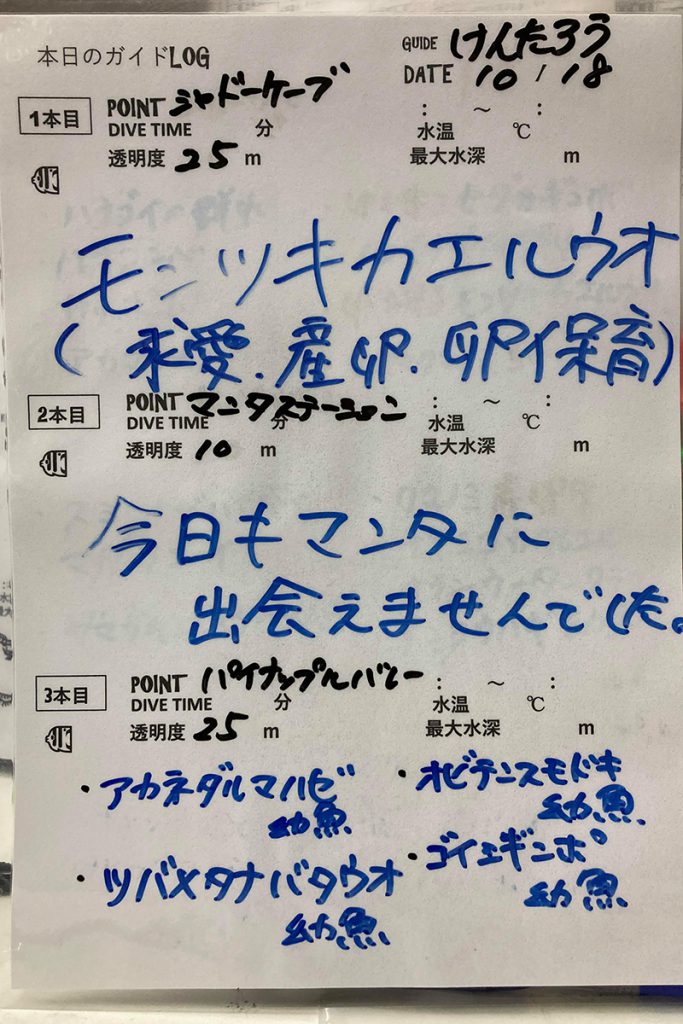 本日のガイドLOG
GUIDE けんたろう
DATE 10 / 18
1本目 POINT シャドーケーブ : ～ :
DIVE TIME 分 水温 ℃
透明度 25 m 最大水深 m
モンツキカエルウオ
(求愛.産卵.卵保育)
2本目 POINT マンタステーション : ～ :
DIVE TIME 分 水温 ℃
透明度 10 m 最大水深 m
今日もマンタに
出会えませんでした。
3本目 POINT パイナップルバレー : ～ :
DIVE TIME 分 水温 ℃
透明度 25 m 最大水深 m
・アカネダルマハゼ
幼魚
・オビテンスモドキ
幼魚
・ツバメタナバタウオ
幼魚
・ゴイシギンポ
幼魚